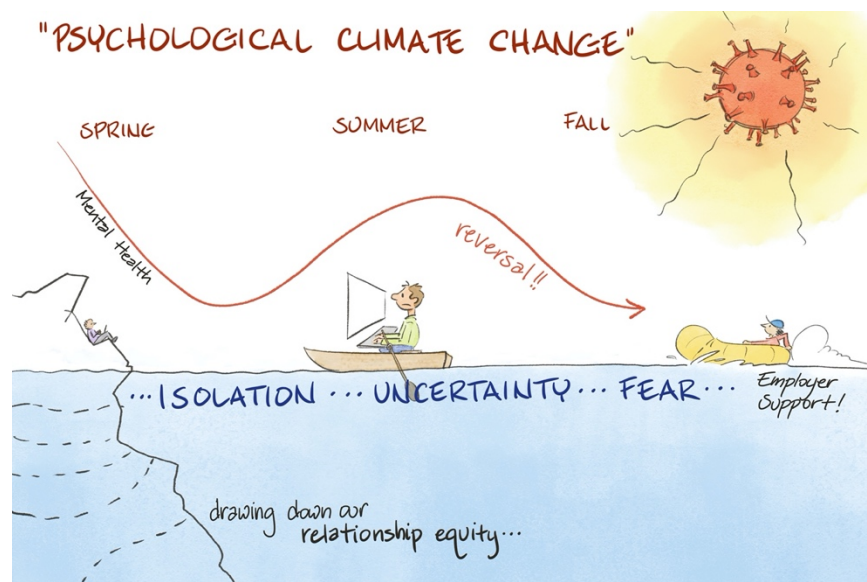 "PSYCHOLOGICAL CLIMATE CHANGE"
SPRING
SUMMER
FALL
Mental Health
reversal!!
...ISOLATION ... UNCERTAINTY... FEAR...
Employer
Support!
drawing down our
relationship equity...